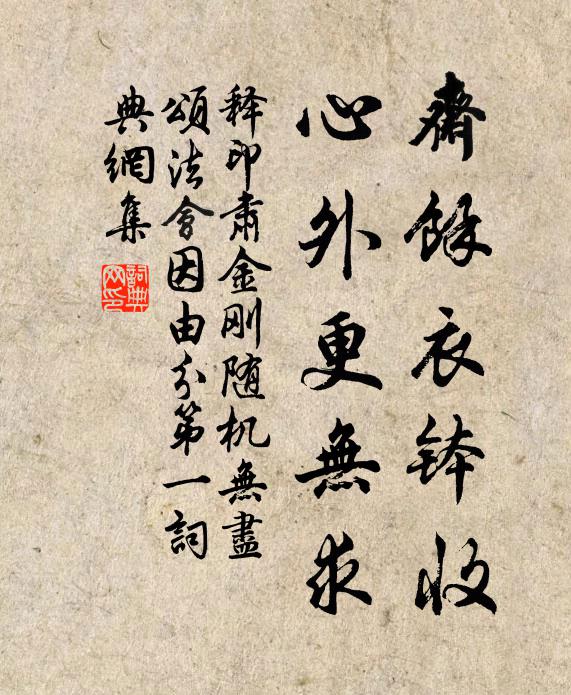 齋餘衣鉢收
心外更無求
释印肅金刚随机無盡
頌法會因由分第一詞
典網集
詞典網印